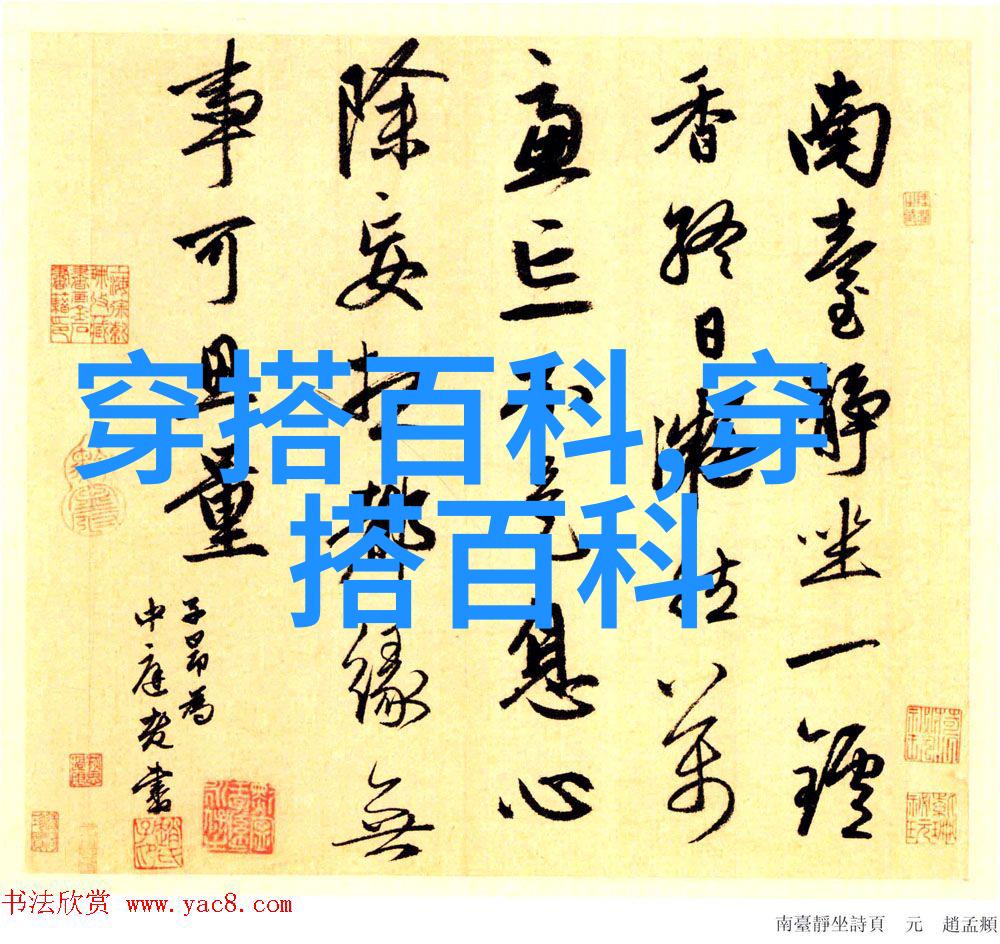 南臺靜坐一鑪
香終日凝然萬
慮亡不是息心
除妄想都緣無
事可量
子昂為
中庭老書
穿搭百科,穿
搭百科
书法欣赏 www.yac8.com
南臺靜坐詩頁 元 趙孟頫